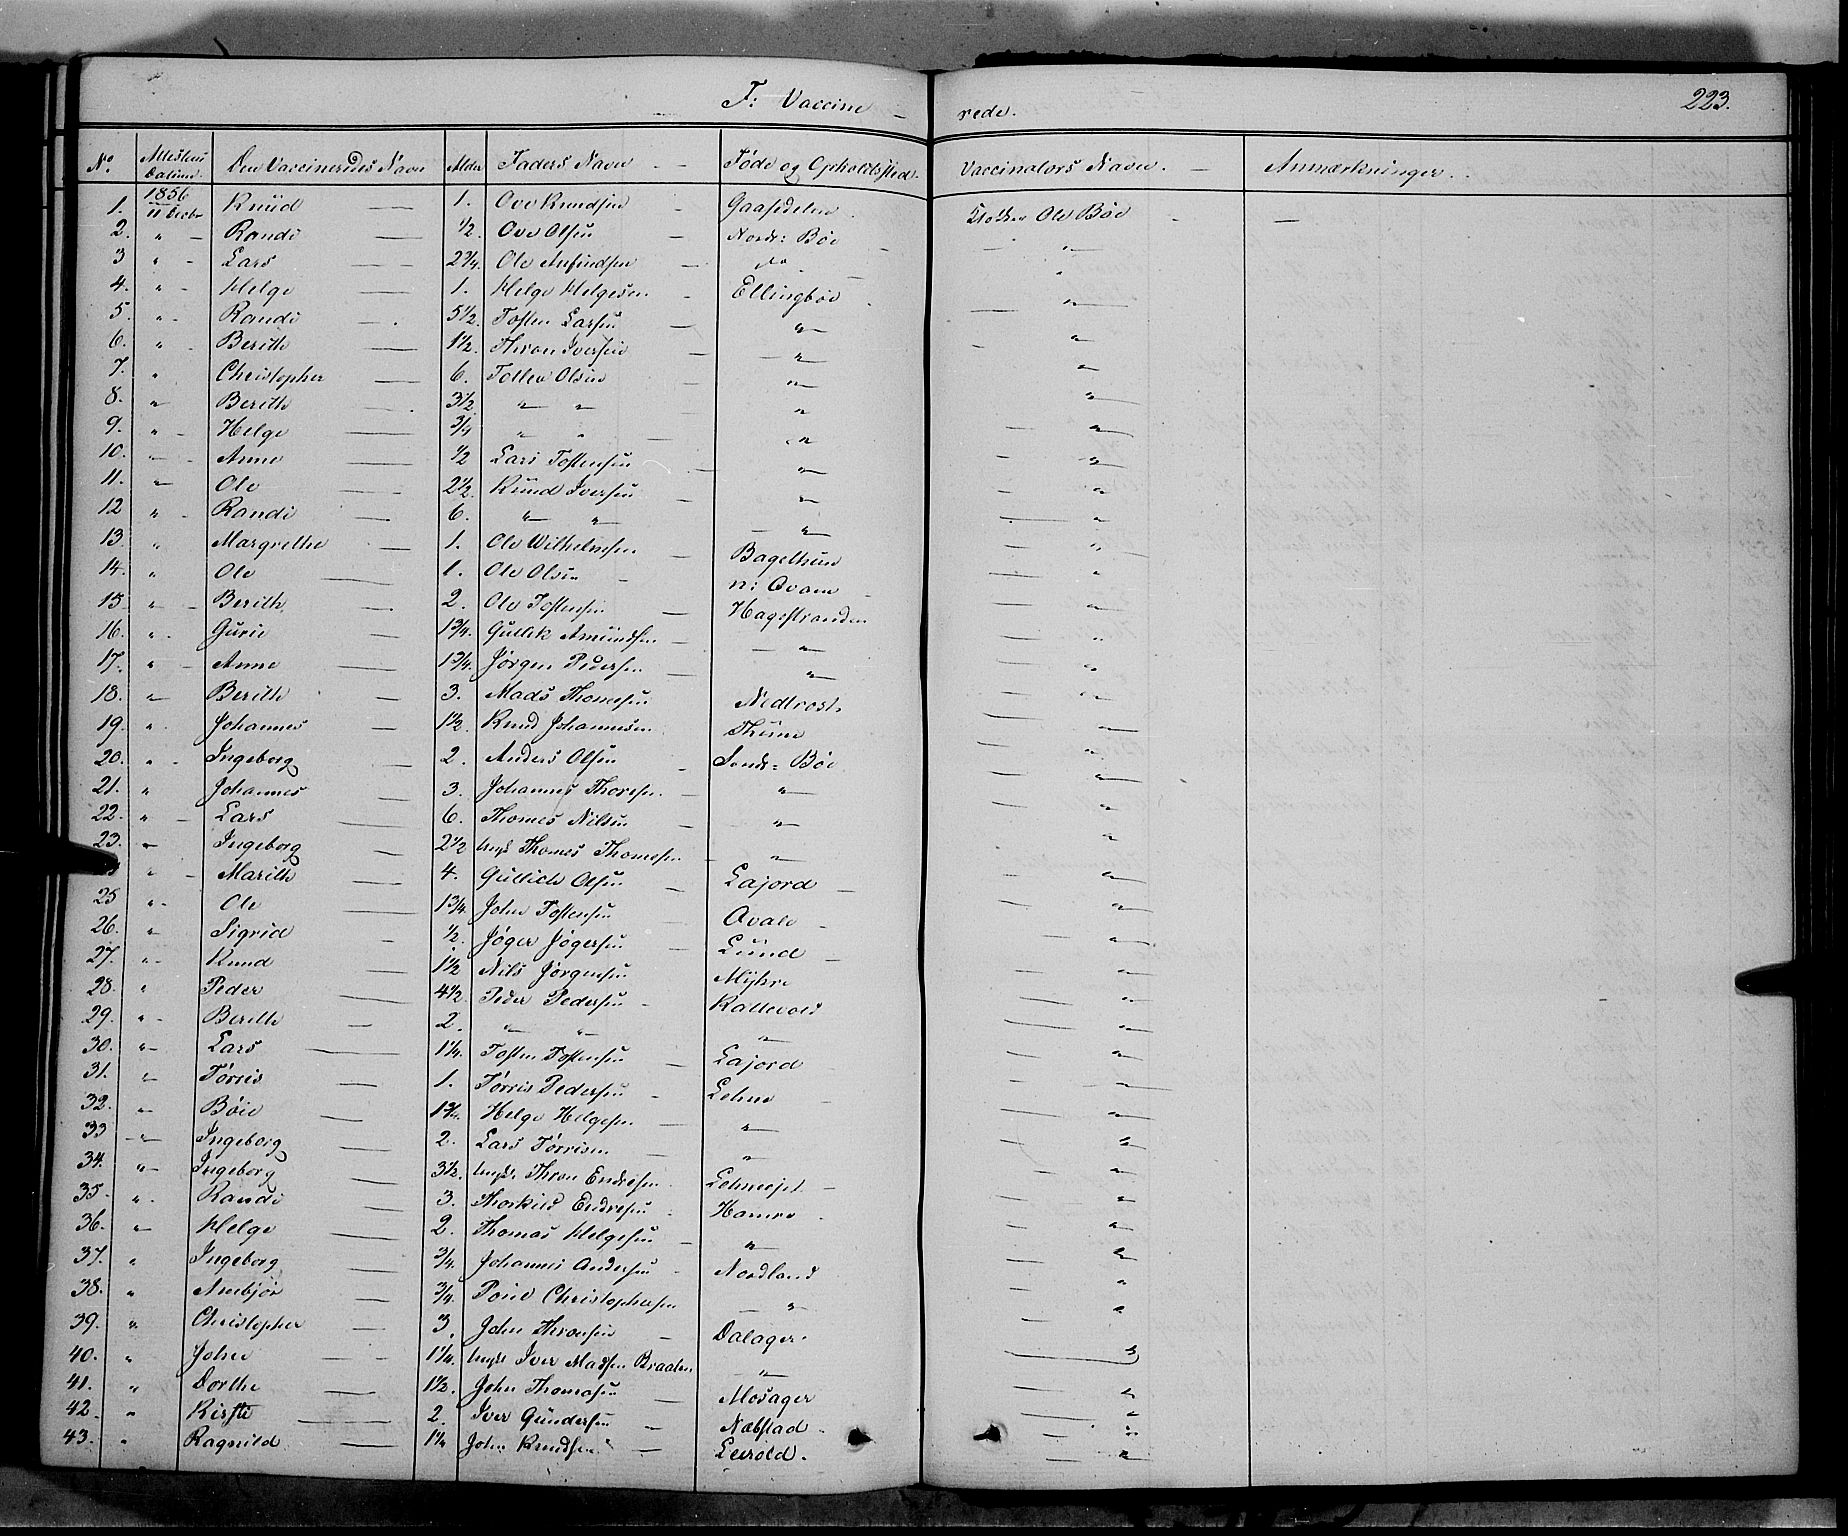 F: Vaccine - rede. 223.
No. Attestens Datum. Den Vaccineredes Navn Alder Faders Navn Føde og Opholdssted. Vaccinators Navn. Anmærkninger.
1856
1. 11 Decbr Knud 1. Ove Knudsen Gaasedelen Ole Bøe
2. " Randi 1/2 Ove Olsen Nordr: Bøe "
3 " Lars 2 3/4. Ole Anfindsen do "
4. " Helge 1. Helge Helgesen Ellingbøe "
5. " Randi 5 1/2. Tosten Larsen " "
6. " Berith 1 1/2. Thron Iversen " "
7. " Christopher 6. Tollev Olsen " "
8. " Berith 3 1/2 " " " "
9. " Helge 3/4 " " " "
10. " Anne 1/2 Lars Tostensen " "
11. " Ole 2 1/2. Knud Iversen " "
12 " Randi 6. " " " "
13. " Margrethe 1. Ole Wilhelmsen Bagethun "
14. " Ole 1. Ole Olsen n: Qvam "
15. " Berith 2. Ole Tostensen Hagestranden "
16. " Gurie 1 3/4. Gullik Amundsen " "
17. " Anne 1 3/4. Jørgen Pedersen " "
18. " Berith 3. Mads Thomesen Nedtrost "
19. " Johannes 1 1/2. Knud Johannesen Thune "
20. " Ingeborg 2. Anders Olsen Søndr: Bøe "
21. " Johannes 3. Johannes Thoresen " "
22. " Lars 6. Thomes Nilsen " "
23. " Ingeborg 2 1/2 Ungk Thomes Thomesen " "
" Marith 4. Gullich Olsen Lajord "
25 " Ole 1 3/4. John Tostensen Qvale "
26. " Sigrid 1/2. Jøger Jøgersen Lund "
27. " Knud 1 1/2 Nils Jørgensen Myhre "
28. " Peder 4 1/2. Peder Pedersen Kattevold "
29. " Berith 2. " " " "
30. " Lars 1 1/4. Tosten Tostensen Lajord "
31. " Tørris 1. Tørris Pedersen Lehne "
32. " Bøie 1 3/4. Helge Helgesen " "
33 " Ingeborg 2. Lars Tørrisen " "
34. " Ingeborg 3 1/2. Ungk. Thron Endresen Lehneejet "
35. " Randi 3. Thorkild Endresen Hamre "
36. " Helge 2. Thomas Helgesen " "
37. " Ingeborg 3/4. Johannes Andersen Nordland "
38. " Anebjør 3/4. Povel Christophersen " "
39. " Christopher 3. John Thronsen Dalager. "
40. " John 1 1/4. Ungk Iver Madsen Braaten " "
41. " Dorthe 1 1/2. John Thomasen Mosager "
42 " Kirsti 2. Iver Gundersen Næbstad "
43. " Ragnild 1 1/4 John Knudsen Leirold. "